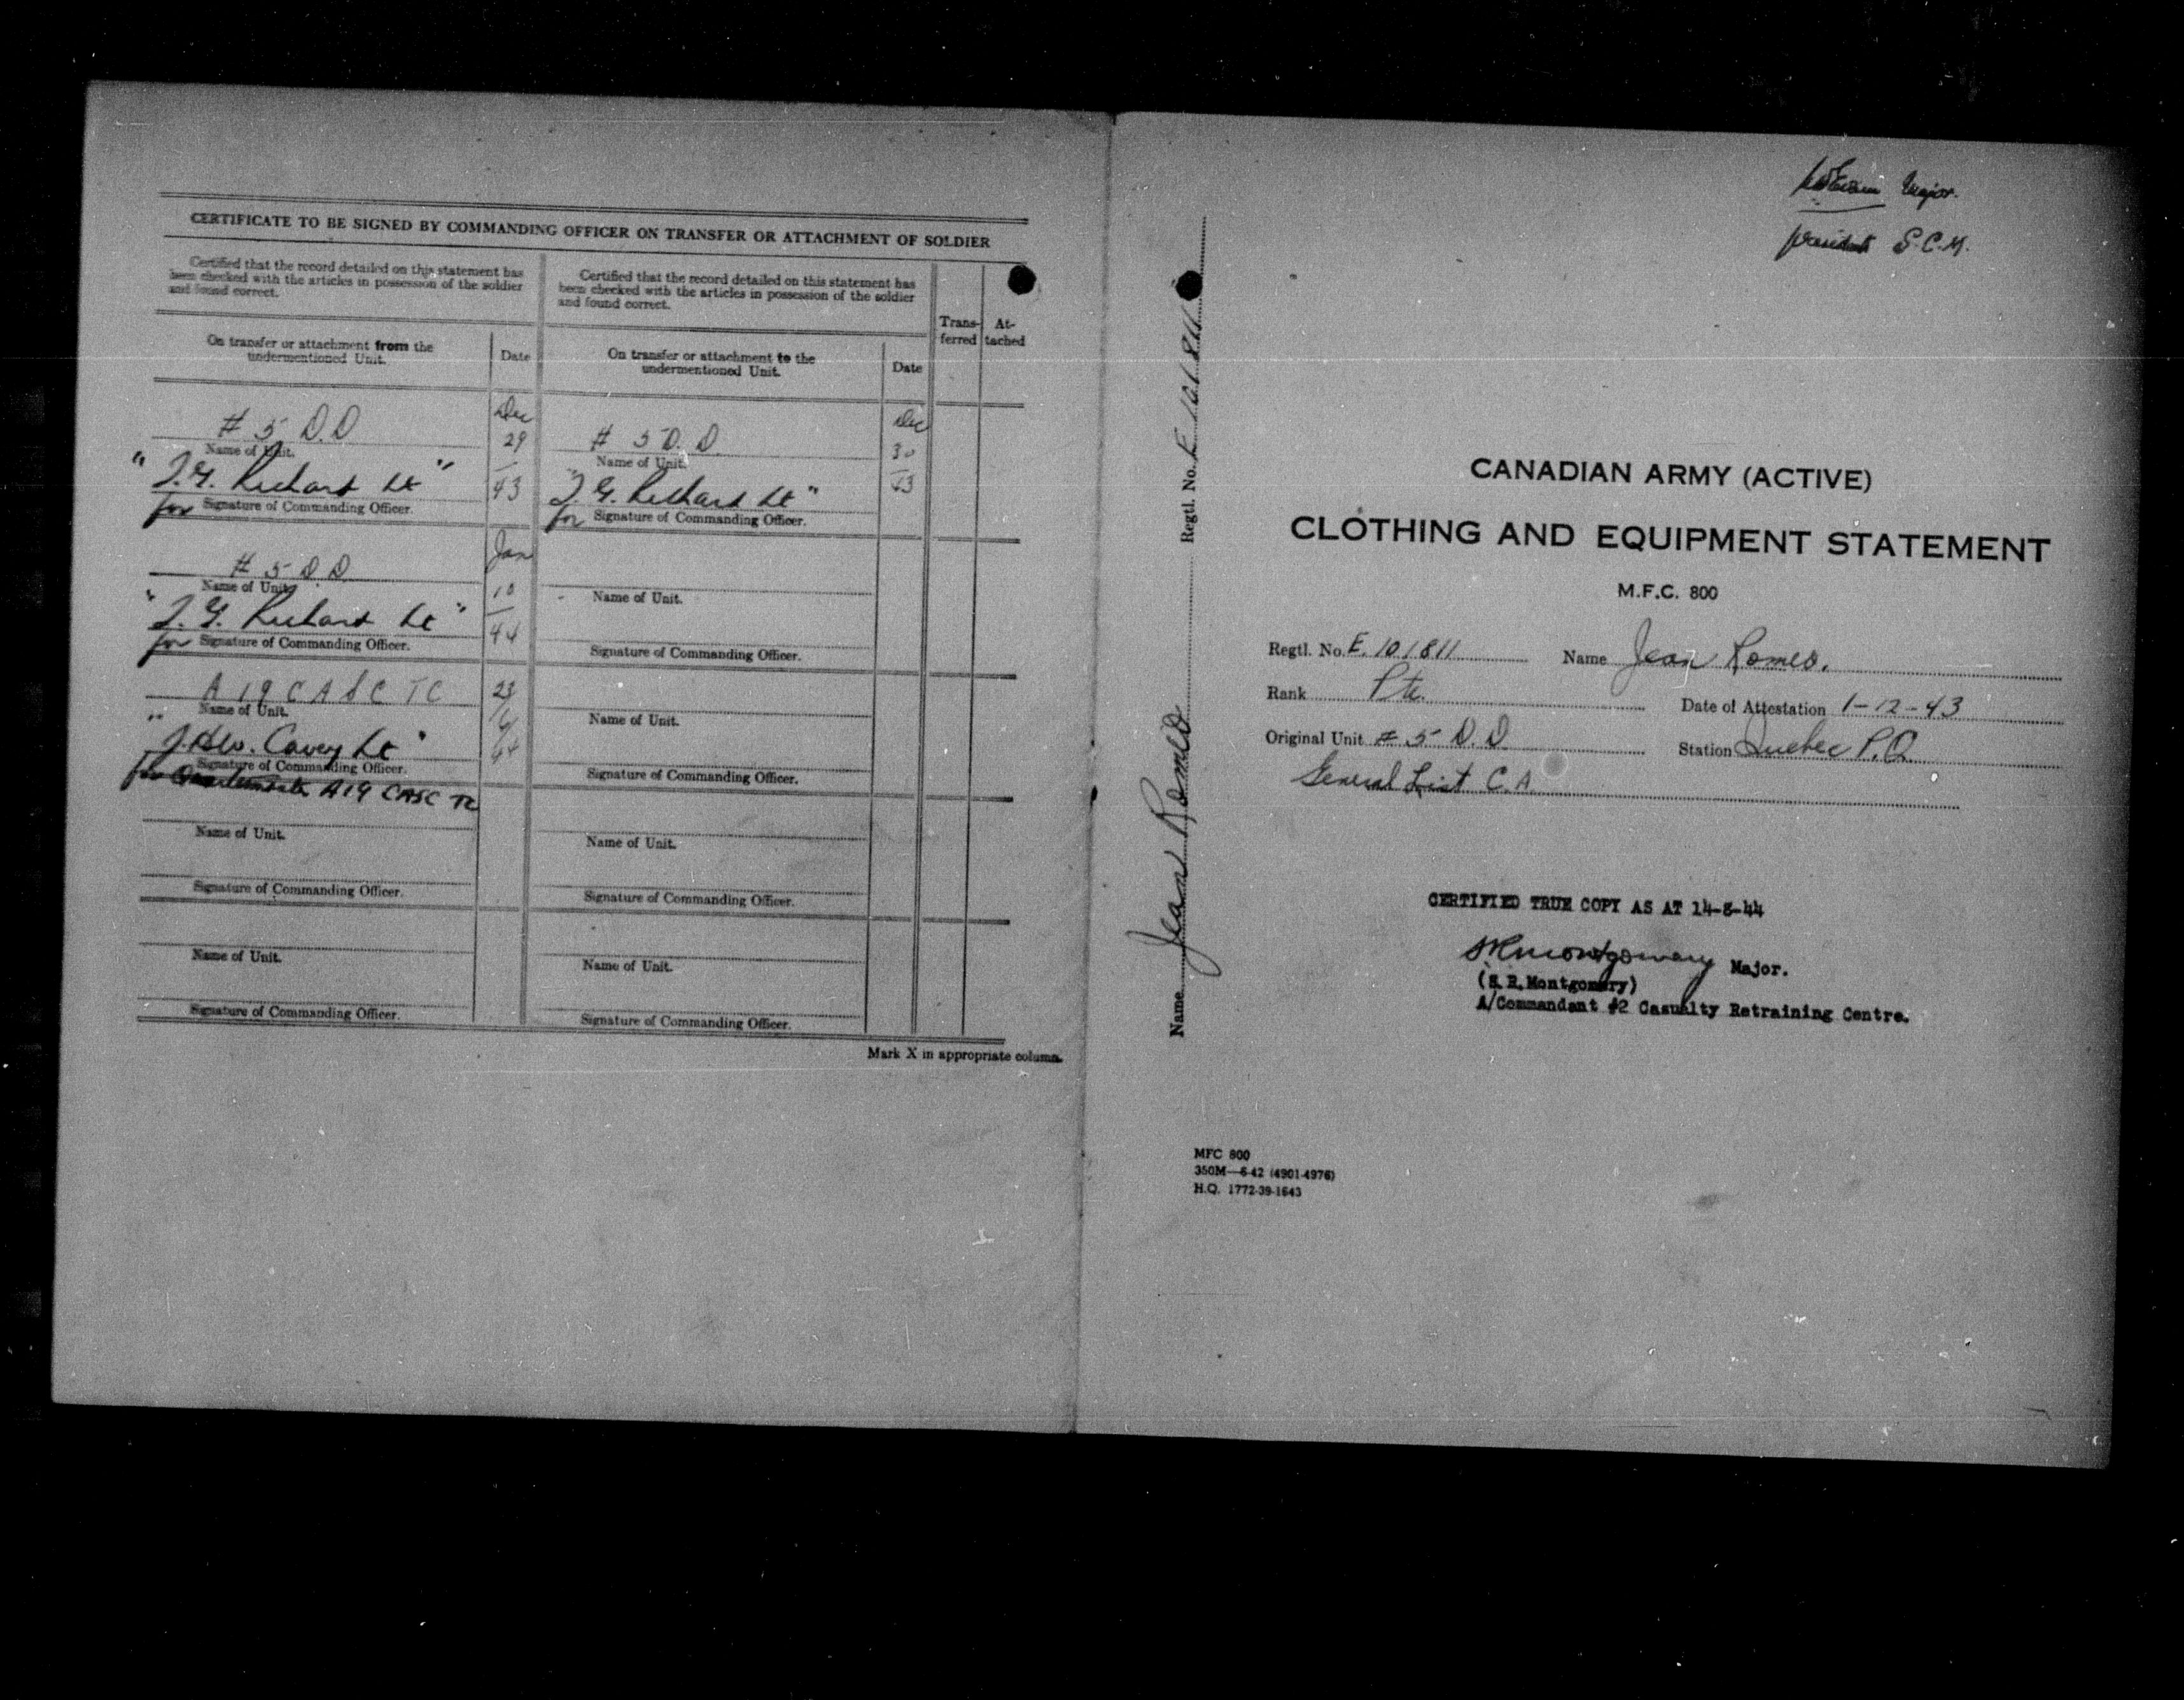 CERTIFICATE TO BE SIGNED BY COMMANDING OFFICER ON TRANSFER OR ATTACHMENT OF SOLDIER
Certified that the record detailed on this statement has
been checked with the articles in possession of the soldier
and found correct.
Certified that the record detailed on this statement has
been checked with the articles in possession of the soldier
and found correct.
Trans-
ferred
At-
tached
On transfer or attachment from the
undermentioned Unit.
Date
On transfer or attachment to the
undermentioned Unit.
Date
# 5 D.D
Name of Unit.
Dec
29
43
# 5 D. D.
Name of Unit.
Dec
30
43
" J.G. Richard Lt "
for Signature of Commanding Officer.
" J.G. Richard Lt "
for Signature of Commanding Officer.
# 5 D.D.
Name of Unit.
Jan
10
44
Name of Unit.
" J.G. Richard Lt "
for Signature of Commanding Officer.
Signature of Commanding Officer.
A 19 C A S C T C
Name of Unit.
Name of Unit.
Lt "
Signature of Commanding Officer.
for A19 CASC TC
Signature of Commanding Officer.
Name of Unit.
Name of Unit.
Signature of Commanding Officer.
Signature of Commanding Officer.
Name of Unit.
Name of Unit.
Signature of Commanding Officer.
Signature of Commanding Officer.
Mark X in appropriate column.
Name Jean Romeo Regtl. No. E 101811
Major.
S.C.M.
CANADIAN ARMY (ACTIVE)
CLOTHING AND EQUIPMENT STATEMENT
M.F.C. 800
Regtl. No. E. 101811 Name Jean Romeo.
Rank Pte. Date of Attestation 1-12-43
Original Unit # 5 D.D. Station Quebec P.Q.
General List C.A.
CERTIFIED TRUE COPY AS AT 14-8-44
SRMontgomery Major.
(S.R.Montgomery)
A/Commandant #2 Casualty Retraining Centre.
MFC 800
350M—6-42 (4901-4976)
H.Q. 1772-39-1643